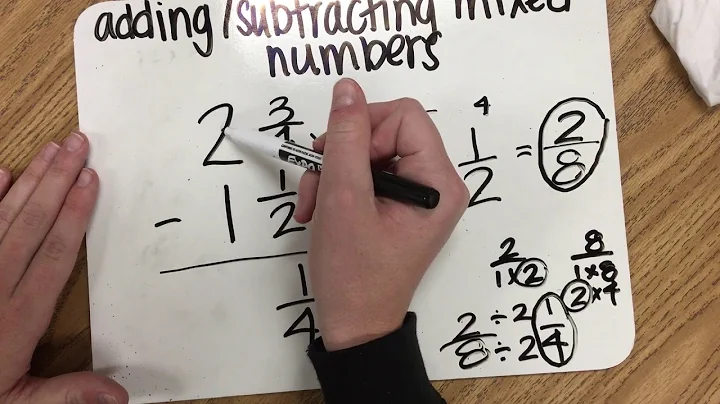 adding/subtracting mixed
numbers
2 3/4
- 1 1/2
1/4
4
1/2 = 2/8
2
1×2
8
1×8
2×4
2/8 ÷2 ÷2 1/4
EXPO